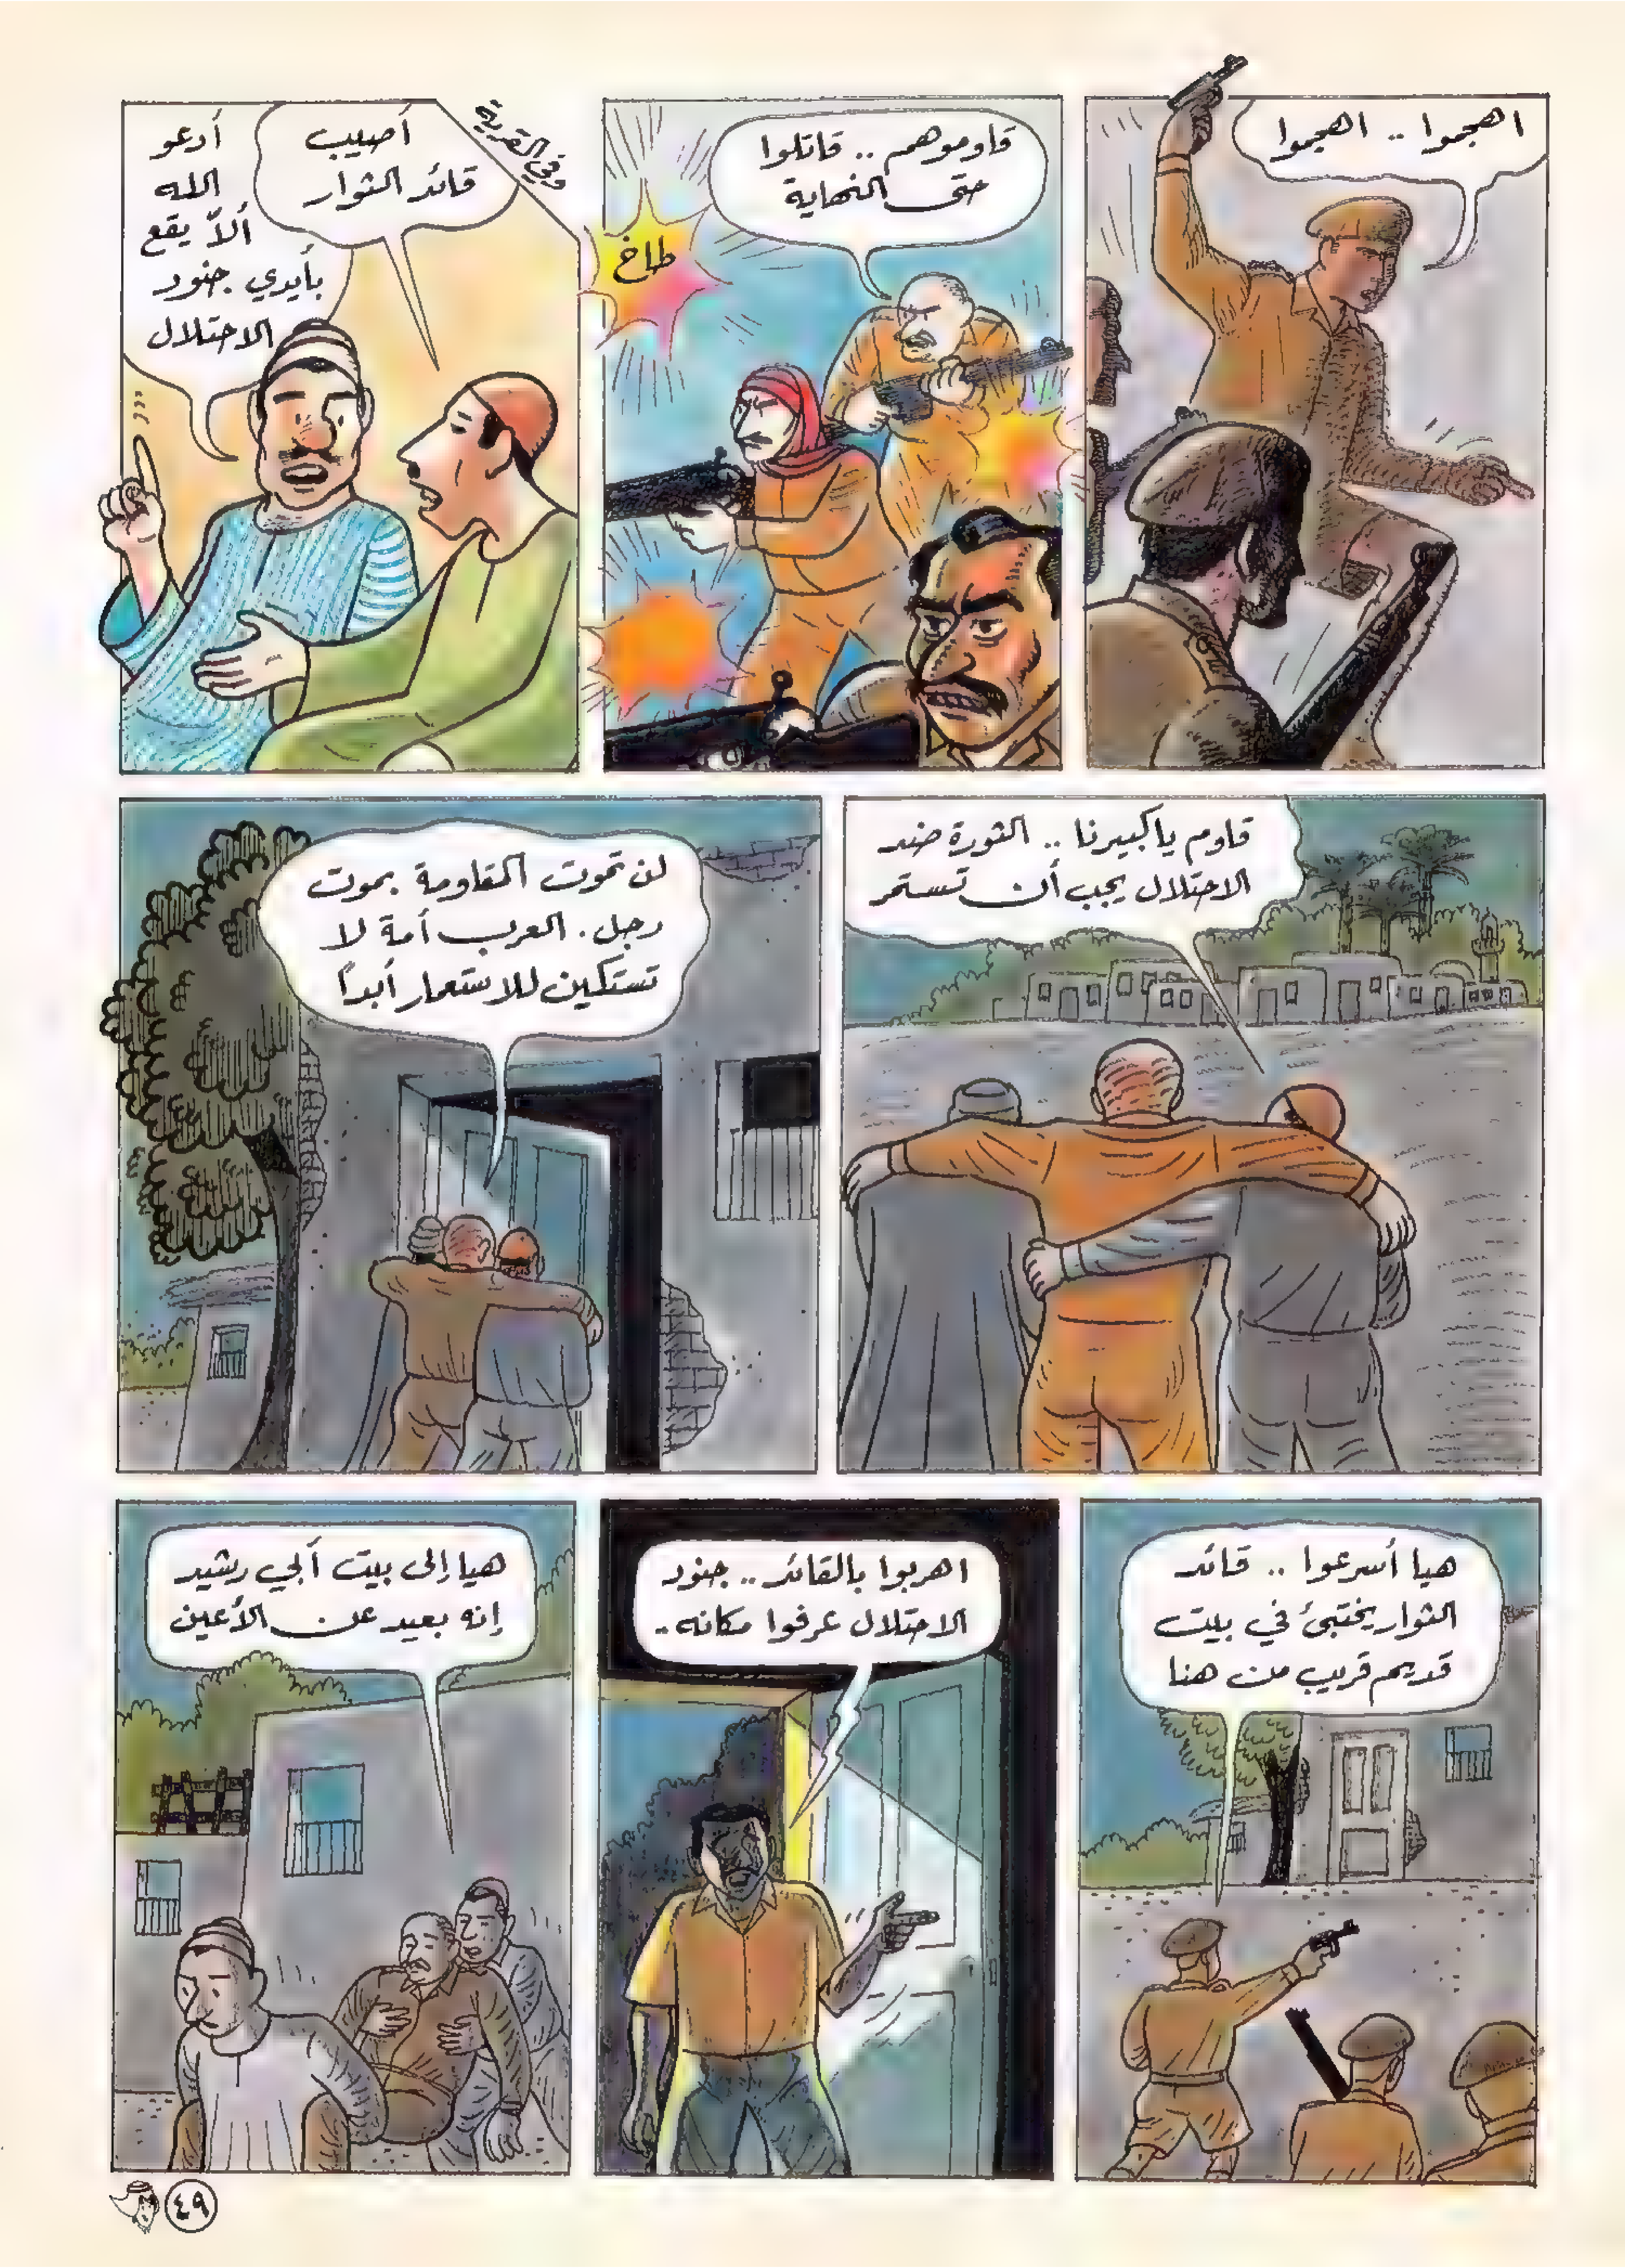 اهجموا .. اهجموا
قاوموهم .. قاتلوا
حتى النهاية
طاخ
وفي القرية
أصيب
قائد الثوار
أدعو
الله
ألاّ يقع
بأيدي جنود
الاحتلال
قاوم يا كبيرنا .. الثورة ضد
الاحتلال يجب أن تستمر
لن تموت المقاومة بموت
رجل . العرب أمة لا
تستكين للاستعمار أبداً
هيا أسرعوا .. قائد
الثوار يختبئ في بيت
قديم قريب من هنا
اهربوا بالقائد .. جنود
الاحتلال عرفوا مكانه ..
هيا إلى بيت أبي رشيد
إنه بعيد عن الأعين
٤٩